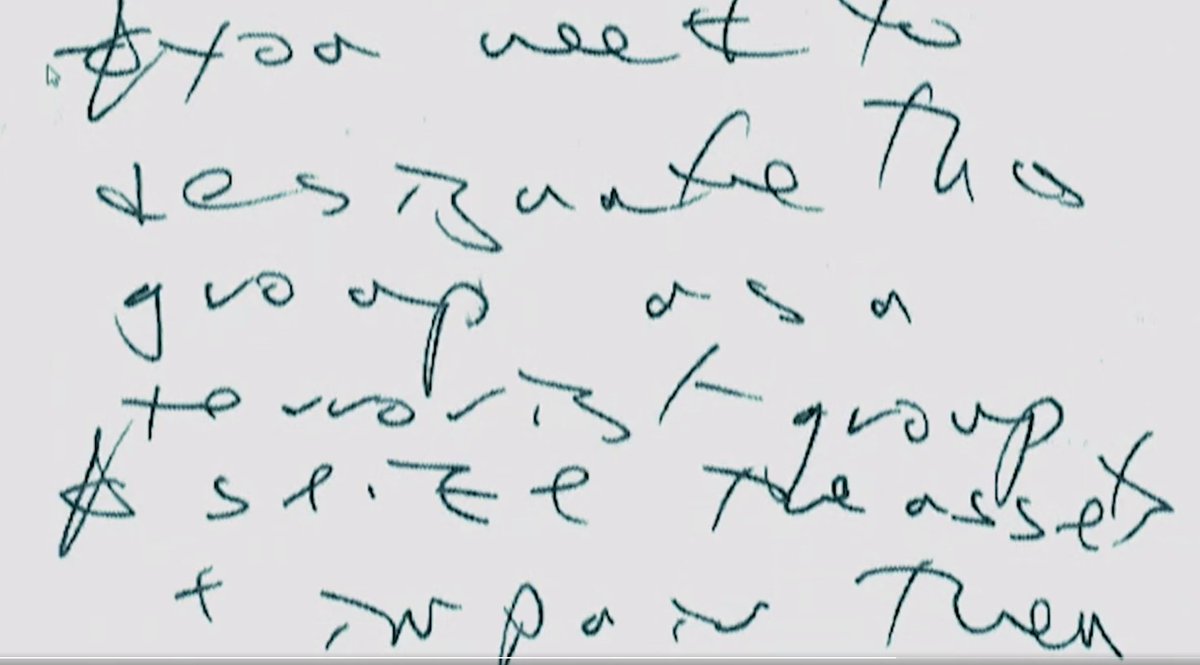 ☆ you need to
designate this
group as a
terrorist group
☆ seize the assets
+ impair them